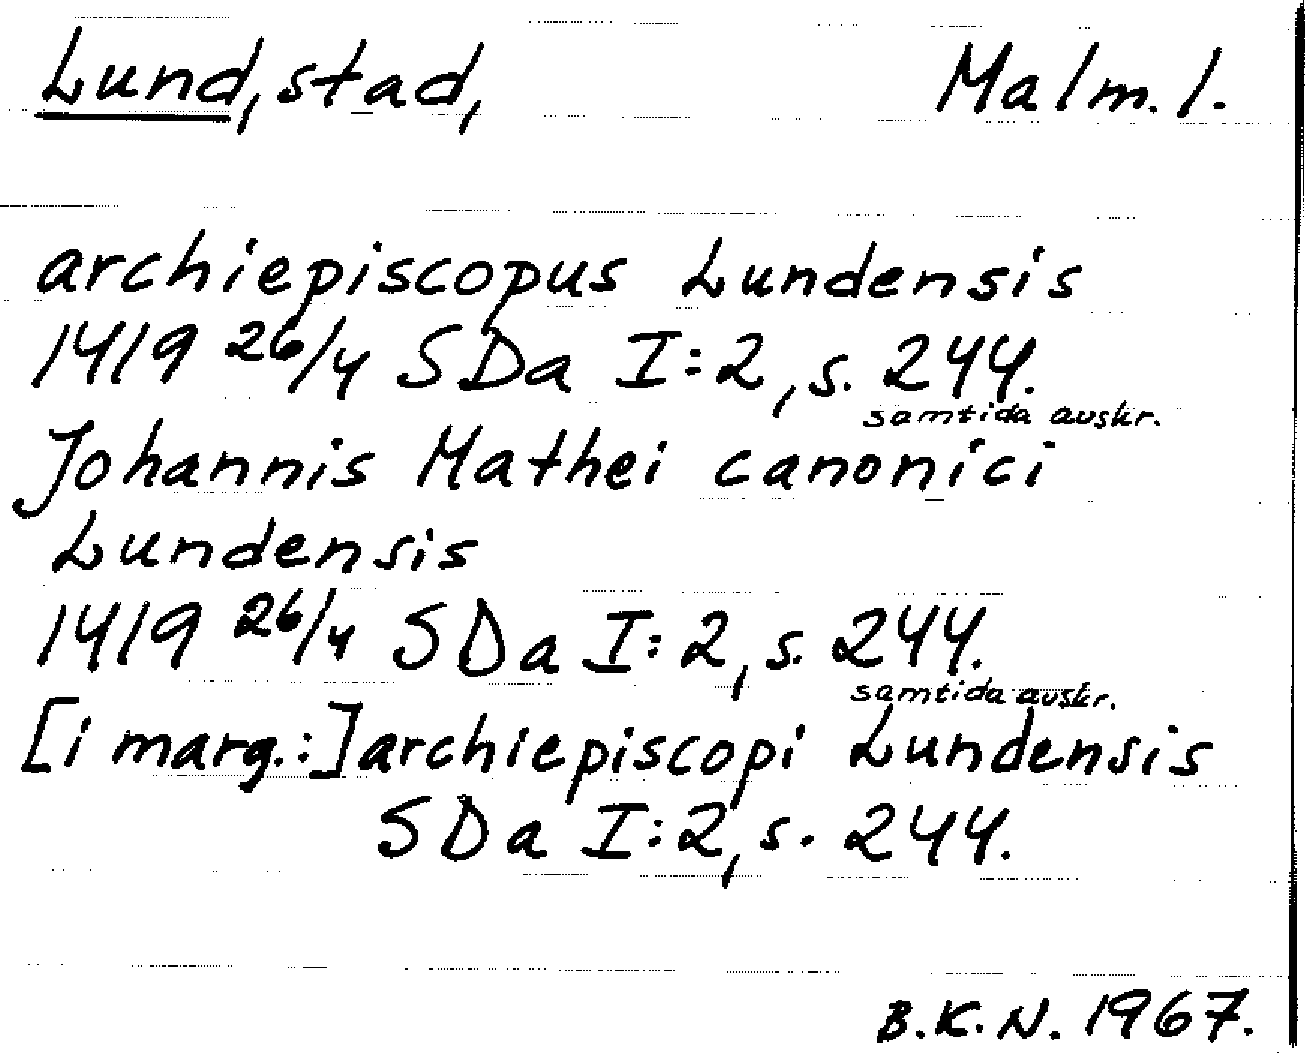 Lund, stad, Malm. l.
archiepiscopus Lundensis
1419 26/4 SDa I:2, s. 244.
samtida avskr.
Johannis Mathei canonici
Lundensis
1419 26/4 SDa I:2, s. 244.
samtida avskr.
[i marg.:] archiepiscopi Lundensis
SDa I:2, s. 244.
B.K.N. 1967.